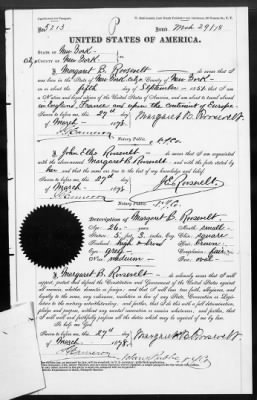 P
No. 5213 Issued Mch 29/78
UNITED STATES OF AMERICA.
STATE OF New York
City & COUNTY OF New York
I, Margaret B. Roosevelt, do swear that I
was born in the State of New York City & County of New York
on or about the fifth day of September 1851, that I am a
Citizen of the United States of America, and am about to travel abroad
in England, France and upon the Continent of Europe.
Sworn to before me, this 27th day Margaret B. Roosevelt.
of March 1878.
Cameron
Notary Public
I, John Ellis Roosevelt, do swear that I am acquainted
with the above-named Margaret B. Roosevelt and with the facts stated by
her, and that the same are true to the best of my knowledge and belief.
Sworn to before me, this 27th day J. E. Roosevelt.
of March 1878.
Cameron
Notary Public
Description of Margaret B. Roosevelt.
Age: 26 Mouth: small
Stature: 5 ft 3 inches, Eng. Chin: square
Forehead: high & broad Hair: brown
Eyes: grey Complexion: fair
Nose: medium Face: oval
I, Margaret B. Roosevelt, do solemnly swear that I will
support, protect and defend the Constitution and Government of the United States
against all enemies, whether domestic or foreign; and that I will bear true faith, allegiance, and
loyalty to the same, any ordinance, resolution or law of any State, Convention or Legislature
to the contrary notwithstanding; and further, that I do this with a full determination,
pledge and purpose, without any mental reservation or evasion whatsoever; and further,
that I will well and faithfully perform all the duties which may be required of me by law.
So help me God.
Sworn to before me, this 27th day Margaret B. Roosevelt.
of March 1878.
Cameron Notary Public